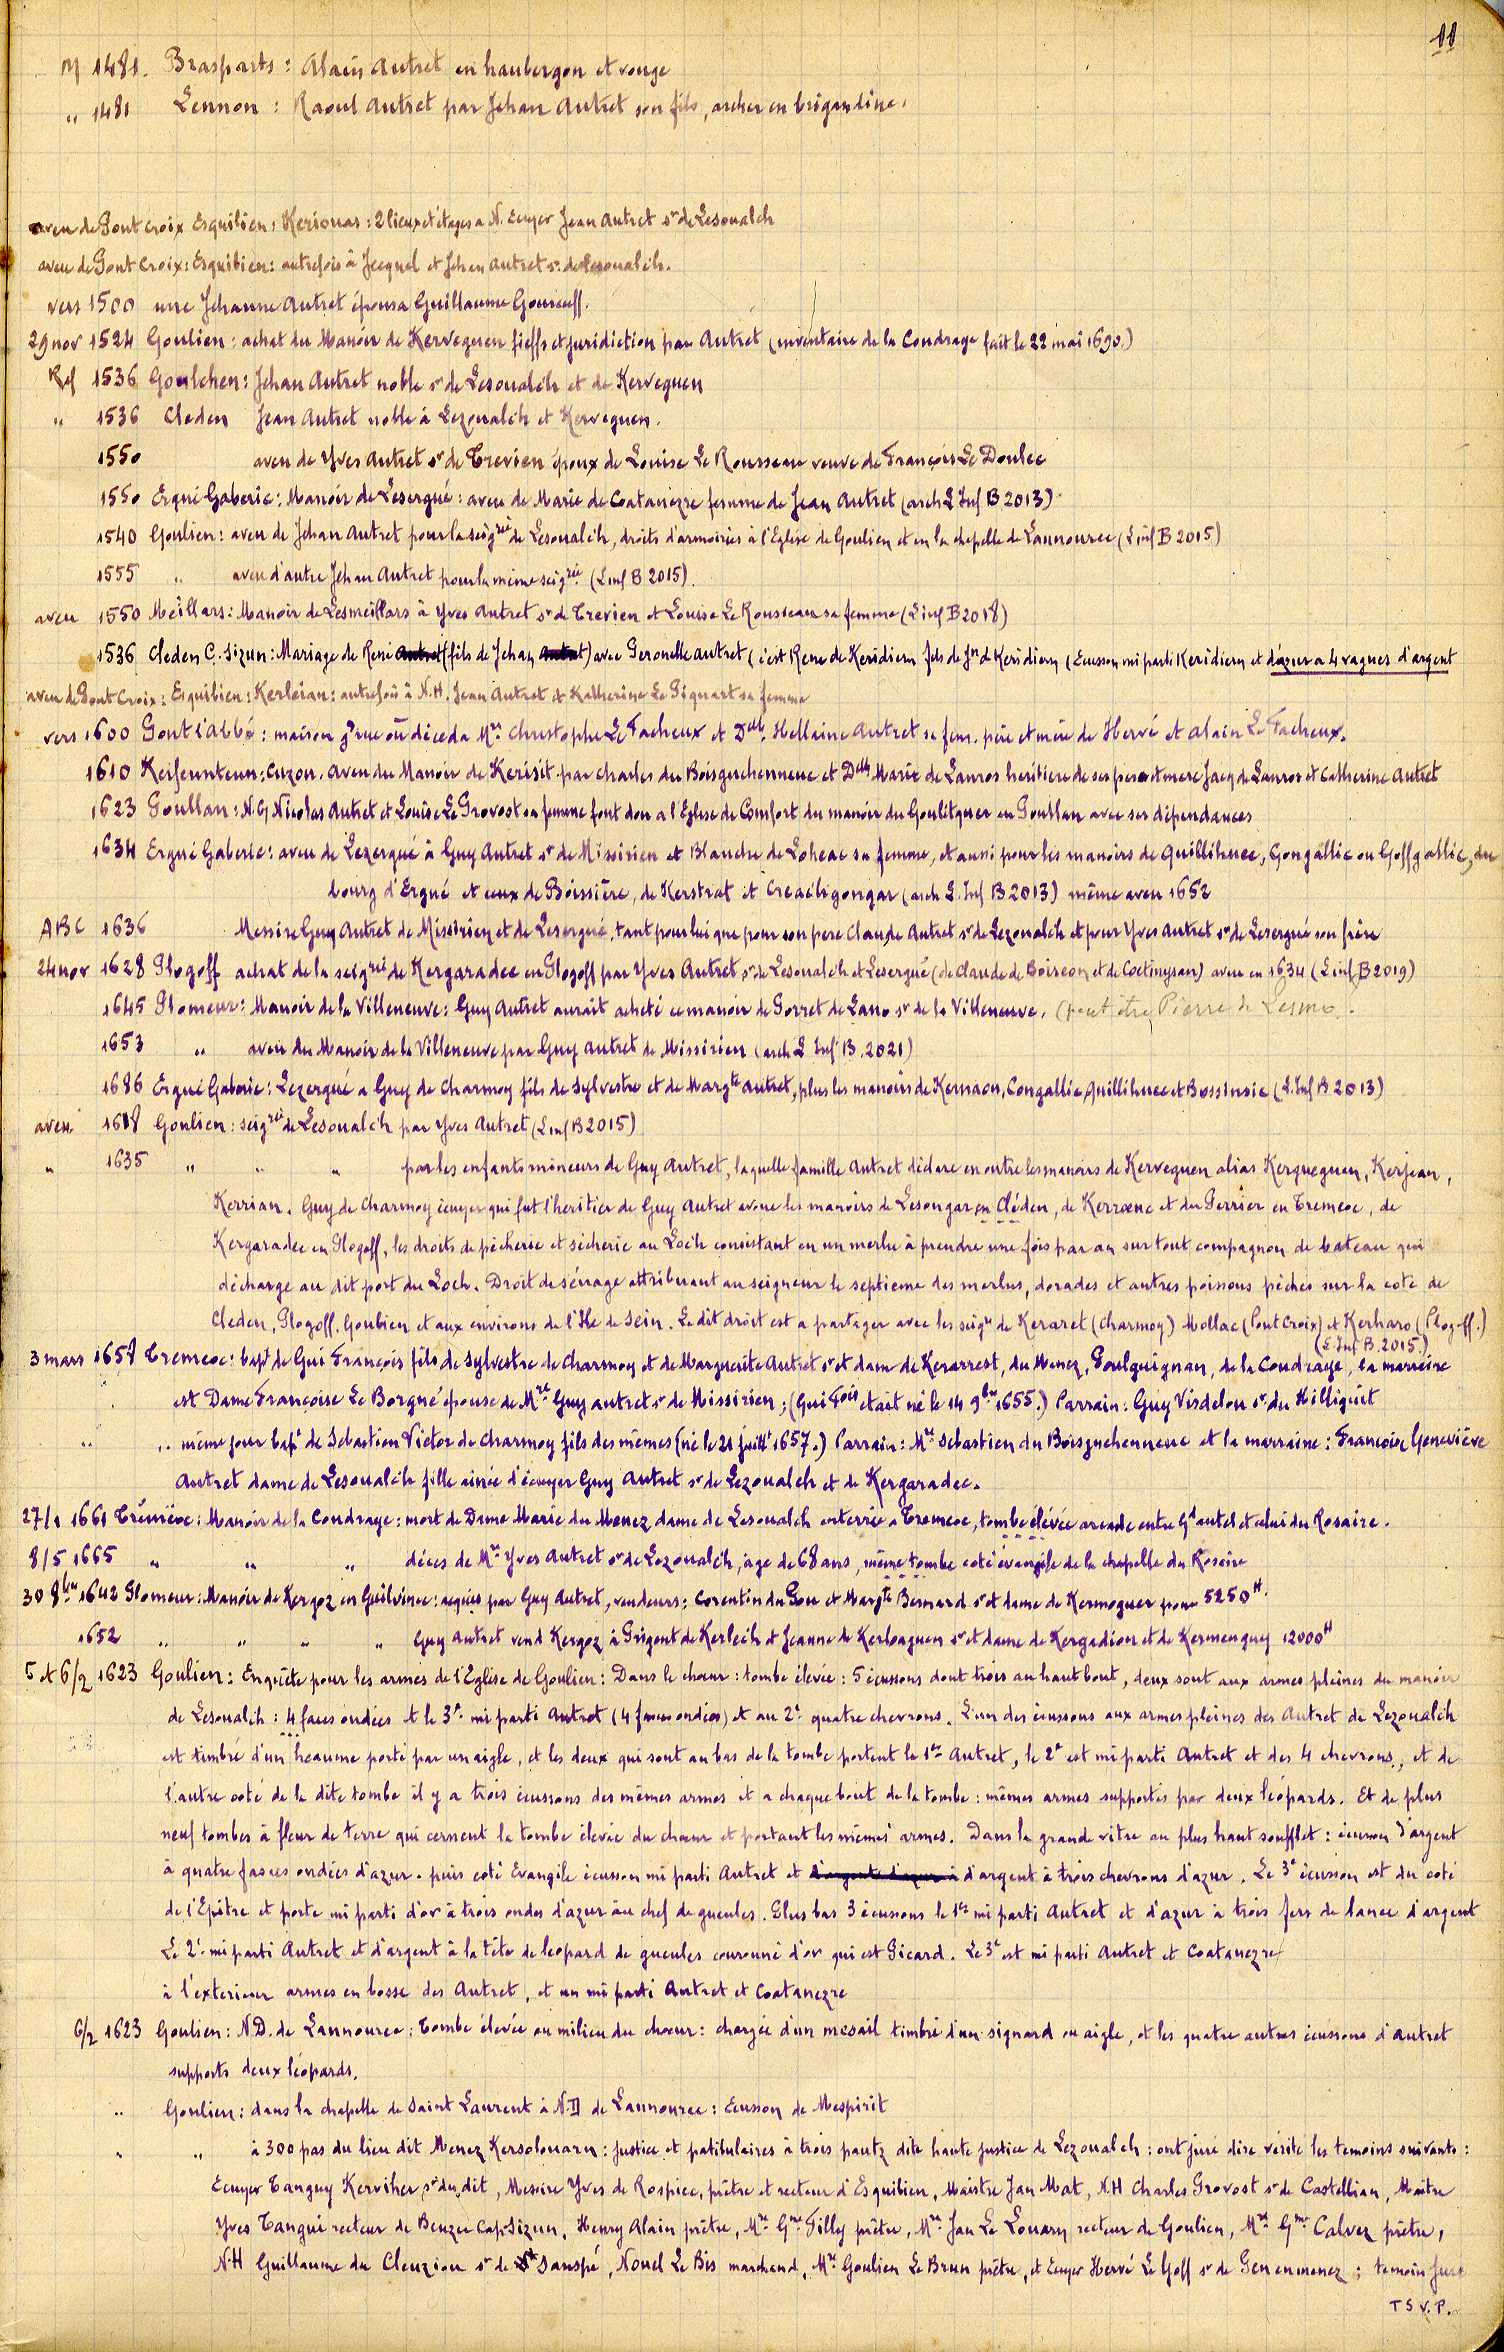 11
M 1481. Brasparts : Alain Autret en haubergon et vouge
" 1481 Lennon : Raoul Autret par Jehan Autret son fils, archer en brigandine.
aveu de Pont Croix Esquibien : Keriouas : 2 lieux et étages a N. Ecuyer Jean Autret sr de Lesoualch
aveu de Pont Croix : Esquibien : autrefois à Jecquel et Jehan Autret sr. de Lesoualc'h.
vers 1500 une Jehanne Autret épousa Guillaume Gourcuff.
29 nov 1524 Goulien : achat du Manoir de Kerveguen fieffs et juridiction par Autret (inventaire de la Coudraye fait le 22 mai 1690.)
Ref 1536 Goulchen : Jehan Autret noble sr de Lesoualc'h et de Kerveguen
" 1536 Cleden Jean Autret noble à Lezoualc'h et Kerveguen.
1550 aveu de Yves Autret sr de Trevien époux de Louise Le Rousseau veuve de François Le Doulec
1550 Ergué Gaberic : Manoir de Lesergué : aveu de Marie de Coatanezre femme de Jean Autret (arch L Inf B 2013)
1540 Goulien : aveu de Jehan Autret pour la seigrie de Lesoualc'h, droits d'armoiries à l'Eglise de Goulien et en la chapelle de Lannourec (L inf B 2015)
1555 " aveu d'autre Jehan Autret pour la même seigrie (L inf B 2015).
aveu 1550 Meillars : Manoir de Lesmeillars à Yves Autret sr de Trevien et Louise Le Rousseau sa femme (L inf B 2018)
1536 Cleden C. Sizun : Mariage de René Autret (fils de Jehan Autret) avec Peronelle Autret (c'est Rene de Keridiern fils de Jn de Keridiern (Ecusson mi parti Keridiern et d'azur a 4 vagues d'argent
aveu de Pont Croix : Esquibien : Kerleian : autrefois à N.H. Jean Autret et Katherine Le Piquart sa femme
vers 1600 Pont l'Abbé : maison gd rue où déceda Mre Christophe Le Facheux et Delle Hellaine Autret sa fem. père et mère de Hervé et Alain Le Facheux.
1610 Kerfeunteun : Cuzon. Aveu du Manoir de Kerisit par Charles du Boisguehenneuc et Delle Marie de Lanros heritiere de ses pere et mere Jacq de Lanros et Catherine Autret
1623 Poullan : N.G Nicolas Autret et Louise Le Provost sa femme font don a l'Eglise de Comfort du manoir du Goulitquer en Poullan avec ses dépendances
1634 Ergué Gaberic : aveu de Lezergué à Guy Autret sr de Missirien et Blanche de Loheac sa femme, et aussi pour les manoirs de Quillihuec, Gongallic ou Goffgallic, du
bourg d'Ergué et ceux de Boissière, de Kerstrat et Creac'higongar (arch L. Inf B 2013) même aveu 1652
ABC 1636 Messire Guy Autret de Missirien et de Lesergué, tant pour lui que pour son pere Claude Autret sr de Lezoualch et pour Yves Autret sr de Lesergué son frère
24 nov 1628 Plogoff achat de la seigrie de Kergaradec en Plogoff par Yves Autret sr de Lesoualch et Lesergué (de Claude de Boiseon et de Coetinysan) aveu en 1634 (L inf B 2019)
1645 Plomeur : Manoir de la Villeneuve : Guy Autret aurait acheté ce manoir de Perret de Lano sr de la Villeneuve. (peut être Pierre de Lesmo ).
1653 " aveu du Manoir de la Villeneuve par Guy Autret de Missirien (arch L Inf B. 2021)
1686 Ergué Gaberic : Lezergué a Guy de Charmoy fils de Sylvestre et de Margte Autret, plus les manoirs de Kernaon, Congallic, Quillihuec et Bossinsic (L. Inf B 2013)
aveu 1618 Goulien : seigrie de Lesoualc'h par Yves Autret (L inf B 2015)
" 1635 " " " par les enfants mineurs de Guy Autret, laquelle famille Autret déclare en outre les manoirs de Kerveguen alias Kergueguen, Kerjean,
Kerrian. Guy de Charmoy écuyer qui fut l'heritier de Guy Autret avoue les manoirs de Lesongar en Cléden, de Kerroenc et du Perrier en Tremeoc, de
Kergaradec en Plogoff, les droits de pêcherie et sècherie au Loc'h consistant en un merlu à prendre une fois par an sur tout compagnon de bateau qui
décharge au dit port du Loch. Droit de sérrage attribuant au seigneur le septieme des merlus, dorades et autres poissons pêchés sur la cote de
Cleden, Plogoff, Goulien et aux environs de l'Ile de Sein. Le dit droit est a partager avec les seigrs de Keraret (Charmoy) Mollac (Pont Croix) et Kerharo (Plogoff.)
(L Inf B. 2015.)
3 mars 1658 Tremeoc : bapt de Gui François fils de Sylvestre de Charmoy et de Marguerite Autret sr et dame de Kerarrest, du Menez, Poulguignan, de la Coudraye, la marraine
est Dame Françoise Le Borgne épouse de Mre Guy Autret sr de Missirien ; (Gui Fois etait né le 14 9bre 1655.) Parrain : Guy Visdelou sr du Hilliguit
" " même jour bapt de Sebastien Victor de Charmoy fils des mêmes (né le 21 juillt 1657.) Parrain : Mre Sebastien du Boisguehenneuc et la marraine : Françoise Geneviève
Autret dame de Lesoualc'h fille ainée d'écuyer Guy Autret sr de Lezoualch et de Kergaradec.
27/1 1661 Tréméoc : Manoir de la Coudraye : mort de Dame Marie du Menez dame de Lesoualch enterrée a Tremeoc, tombe élévée arcade entre Gd autel et celui du Rosaire.
8/5 1665 " " " décès de Mre Yves Autret sr de Lezoualc'h, age de 68 ans, même tombe coté évangile de la chapelle du Rosaire
30 8bre 1642 Plomeur : Manoir de Kergoz en Guilvinec : acquis par Guy Autret, vendeurs : Corentin du Pou et Margte Besnard sr et dame de Kermoguer pour 5250 tt.
1652 " " " " Guy Autret vend Kergoz à Prigent de Kerlec'h et Jeanne de Kerloaguen sr et dame de Kergadiou et de Kermenguy 12000 tt
5 et 6/2 1623 Goulien : Enquête pour les armes de l'Eglise de Goulien : Dans le chœur : tombe élevée : 5 écussons dont trois au haut bout, deux sont aux armes pleines du manoir
de Lesoualch : 4 faces ondées et le 3e mi parti Autret (4 faces ondées) et au 2e quatre chevrons. L'un des écussons aux armes pleines des Autret de Lezoualch
est timbré d'un heaume porté par un aigle, et les deux qui sont au bas de la tombe portent le 1er Autret, le 2e est mi parti Autret et des 4 chevrons, et de
l'autre coté de la dite tombe il y a trois écussons des mêmes armes et a chaque bout de la tombe : mêmes armes supportés par deux léopards. Et de plus
neuf tombes à fleur de terre qui cernent la tombe élevée du chœur et portant les mêmes armes. Dans la grande vitre au plus haut soufflet : écusson d'argent
à quatre fasces ondées d'azur. puis coté Evangile écusson mi parti Autret et d'argent à trois chevrons d'azur. Le 3e écusson est du coté
de l'Epître et porte mi parti d'or à trois ondes d'azur au chef de gueules. Plus bas 3 écussons le 1er mi parti Autret et d'azur à trois fers de lance d'argent
Le 2e mi parti Autret et d'argent à la tête de leopard de gueules couronné d'or qui est Picard. Le 3e est mi parti Autret et Coatanezre
à l'exterieur armes en bosse des Autret, et un mi parti Autret et Coatanezre
6/2 1623 Goulien : N.D. de Lannourec : Tombe élevée au milieu du chœur : chargée d'un mesail timbré d'un signard ou aigle, et les quatre autres écussons d'Autret
supports deux léopards.
" Goulien : dans la chapelle de Saint Laurent à N.D de Lannourec : Ecusson de Mespirit
" " à 300 pas du lieu dit Menez Kersolouarn : justice et patibulaires à trois pautz dite haute justice de Lezoualch : ont juré dire vérité les temoins suivants :
Ecuyer Tanguy Kerviher sr du dit, Messire Yves de Rospiec, prêtre et recteur d'Esquibien, Maistre Jan Mat, N.H Charles Provost sr de Castellian, Maitre
Yves Tangui recteur de Beuzec Cap-Sizun, Henry Alain prêtre, Mre Gme Filly prêtre, Mre Jan Le Louarn recteur de Goulien, Mre Gme Calvez prêtre,
N.H Guillaume du Cleuziou sr de Sanspé, Nouel Le Bis marchand, Mre Goulien Le Brun prêtre, et Ecuyer Hervé Le Goff sr de Penenmenez ; temoin
T S V. P.